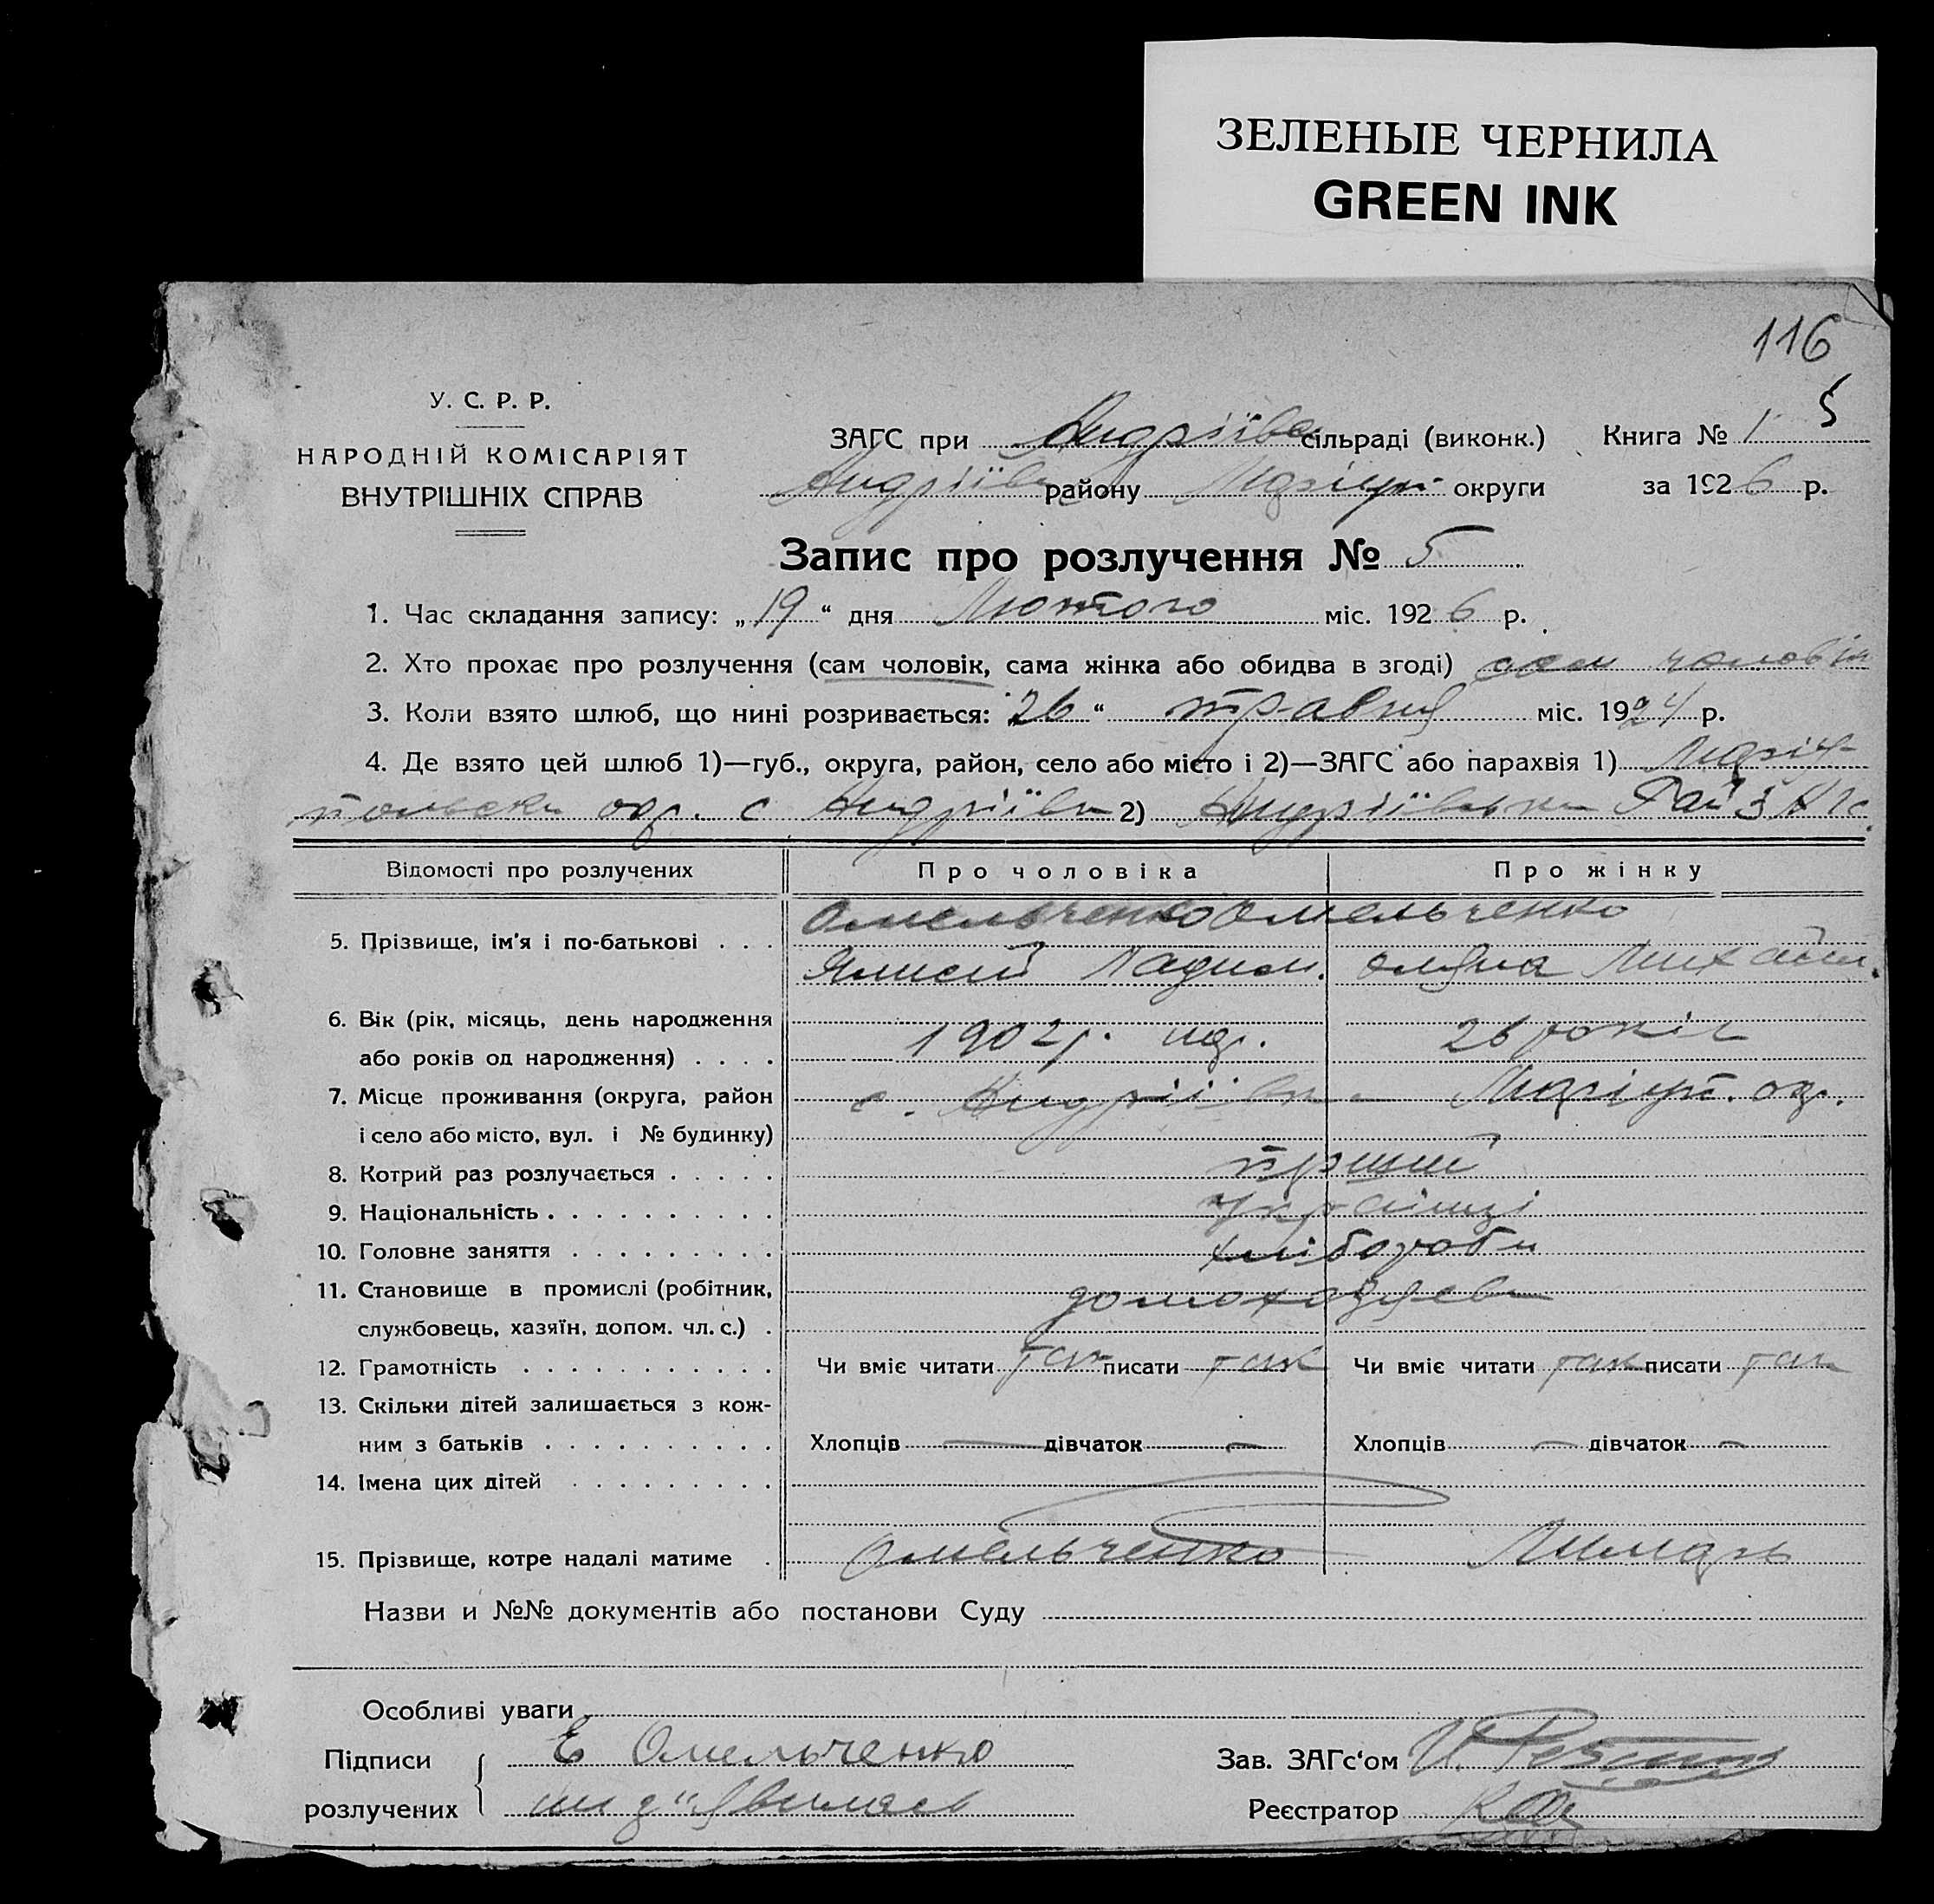 ЗЕЛЕНЫЕ ЧЕРНИЛА
GREEN INK
116
5
У. С. Р. Р.
НАРОДНІЙ КОМІСАРІЯТ
ВНУТРІШНІХ СПРАВ
ЗАГС при Андріївс сільраді (виконк.) Книга № 1
Андріївс району Маріуп округи за 1926 р.
Запис про розлучення № 5
1. Час складання запису: „19“ дня Лютого міс. 1926 р.
2. Хто прохає про розлучення (сам чоловік, сама жінка або обидва в згоді) сам чоловік
3. Коли взято шлюб, що нині розривається: „26“ травня міс. 1924 р.
4. Де взято цей шлюб 1)—губ., округа, район, село або місто і 2)—ЗАГС або парахвія 1) Маріу-
польська окр. с Андріївка 2) Андріївським
Відомості про розлучених
Про чоловіка
Про жінку
5. Прізвище, ім'я і по-батькові . . .
Омельченко
Омельченко
Михайл.
6. Вік (рік, місяць, день народження
або років од народження) . . . .
1902 р. нар.
26 років
7. Місце проживання (округа, район
і село або місто, вул. і № будинку)
с. Андріївка Маріуп. окр.
8. Котрий раз розлучається . . . . .
перший
9. Національність . . . . . . . . . .
Українці
10. Головне заняття . . . . . . . . .
хлібороби
11. Становище в промислі (робітник,
службовець, хазяїн, допом. чл. с.) .
12. Грамотність . . . . . . . . . . .
Чи вміє читати так писати так
Чи вміє читати так писати так
13. Скільки дітей залишається з кож-
ним з батьків . . . . . . . . . .
Хлопців — дівчаток —
Хлопців — дівчаток —
14. Імена цих дітей . . . . . . . . .
15. Прізвище, котре надалі матиме .
Омельченко
Лимарь
Назви и №№ документів або постанови Суду
Особливі уваги
Підписи
розлучених
Е Омельченко
Зав. ЗАГс'ом
Реєстратор